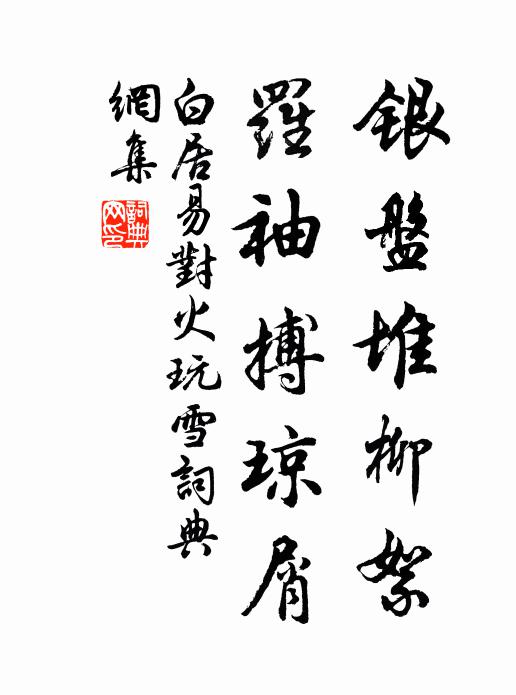 銀盤堆柳絮
羅袖搏琼屑
白居易對火玩雪詞典
網集
詞典
网印